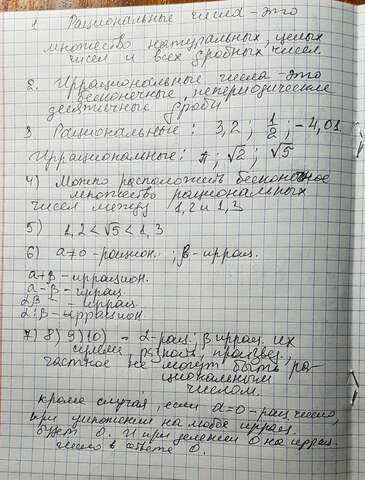 1 Рациональные числа - это
множество натуральных, целых
чисел и всех дробных чисел.
2. Иррациональные числа - это
бесконечные, непериодические
десятичные дроби.
3 Рациональные: 3,2; 1/2; -4,01
Иррациональные: π; √2; √5
4) Можно расположить бесконечное
множество рациональных
чисел между 1,2 и 1,3
5) 1,2 < √5 < 1,3
6) α≠0 - рацион. ; β - иррац.
α+β - иррацион.
α-β - иррац.
αβ - иррац.
α:β - иррацион.
7) 8) 9) 10) - α - рац. β иррац. их
сумма, разность, произвед.,
частное не могут быть ра-
циональным
числом.
кроме случая, если α=0 - рац число,
при умножении на любое иррац.
будет 0. И при делении 0 на иррац.
число в ответе 0.